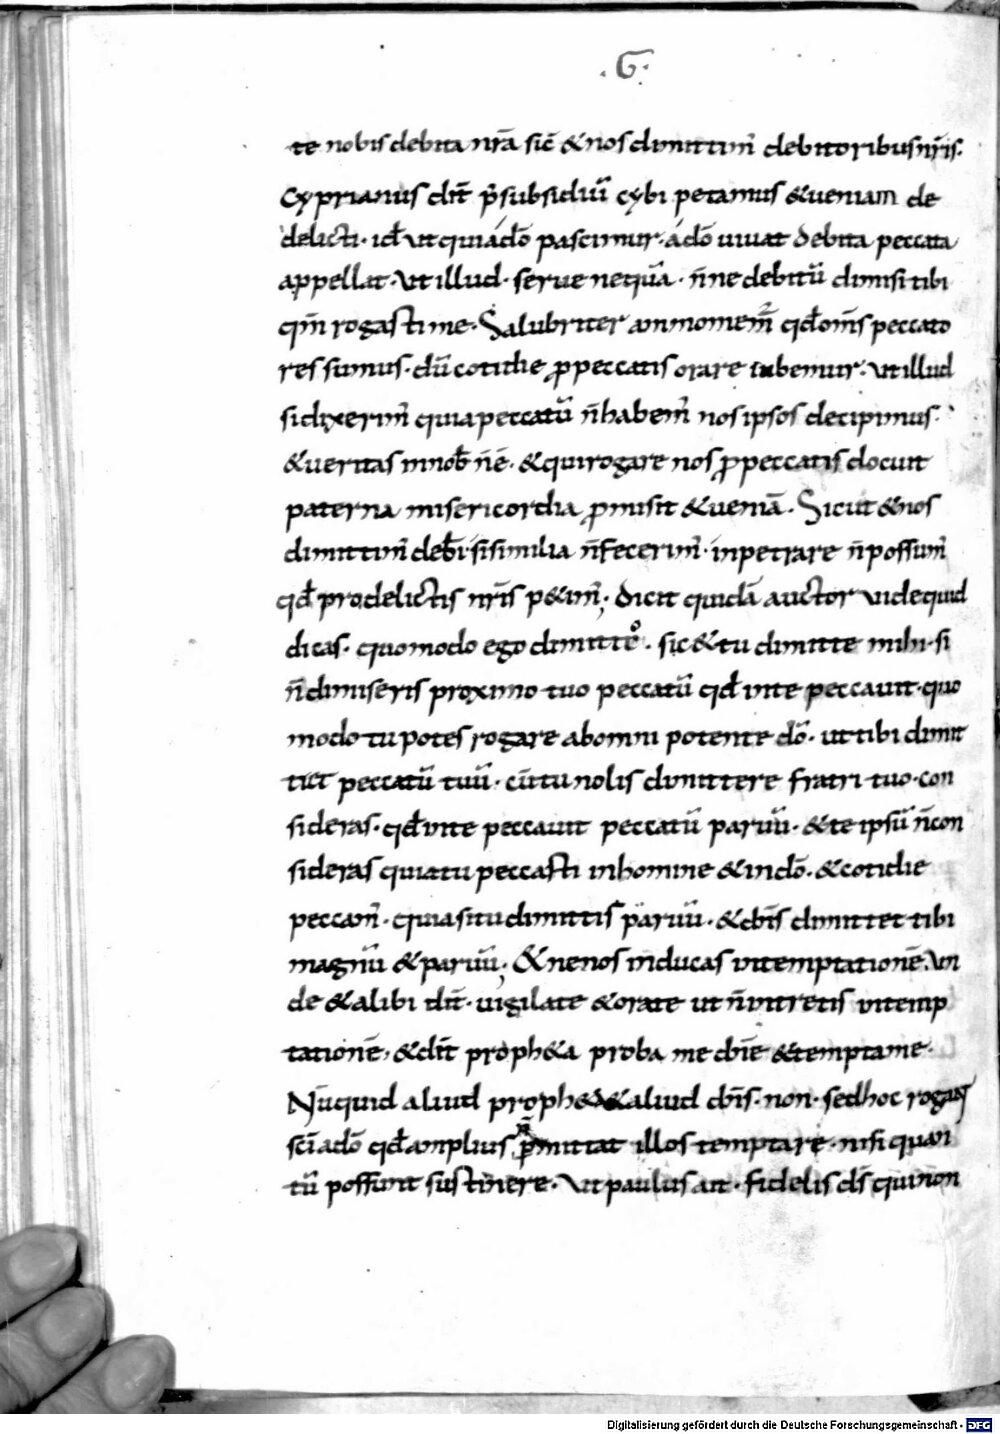 .G.
te nobis debita nr̄a sic̄ & nos dimittim̄ debitoribus nr̄is.
Cyprianus dix̄ p̄ subsidiū cybi petamus & ueniam de
delicti· id̄ ut qui a dō pascimur· a dō uiuat debita peccata
appellat· ut illud· serue nequā· n̄ne debitū dimisi tibi
qm̄ rogasti me· Salubriter ammonem̄ qd̄ om̄s peccato
res sumus· dū cotidie p peccatis orare iubemur· ut illud
si dixerim̄ quia peccatū n̄ habem̄ nos ipsos decipimus·
& ueritas in nob̄ n̄ē· & qui rogare nos p peccatis docuit
paterna misericordia promisit & ueniā· Sicut & nos
dimittim̄ deb̄i· si similia n̄ fecerim̄· inpetrare n̄ possum̄
qd̄ pro delictis nr̄is p&im̄; dicit quidā auctor uide quid
dicas· quomodo ego dimitto· sic & tu dimitte mihi· si
n̄ dimiseris proximo tuo peccatū qd̄ in te peccauit· quo
modo tu potes rogare ab omni potente dō· ut tibi dimit
tat peccatū tuū· cū tu nolis dimittere fratri tuo· con
sideras· qd̄ in te peccauit peccatū paruū· & te ipsū n̄ con
sideras quia tu peccasti in homine & in dō· & cotidie
peccam̄· quia si tu dimittis paruū· & dn̄s dimittet tibi
magnū & paruū; & ne nos inducas in temptationē· Vn
de & alibi dix̄· uigilate & orate ut n̄ intretis in temp
tationē, & dix̄ proph&a proba me dn̄e & tempta me·
Nūquid aliud proph& & aliud dn̄s· non· sed hoc rogant
sc̄i a dō qd̄ amplius n̄ pmittat illos temptare· nisi quan
tū possunt sustinere· Vt paulus ait· fidelis d̄s qui non
Digitalisierung gefördert durch die Deutsche Forschungsgemeinschaft - DFG